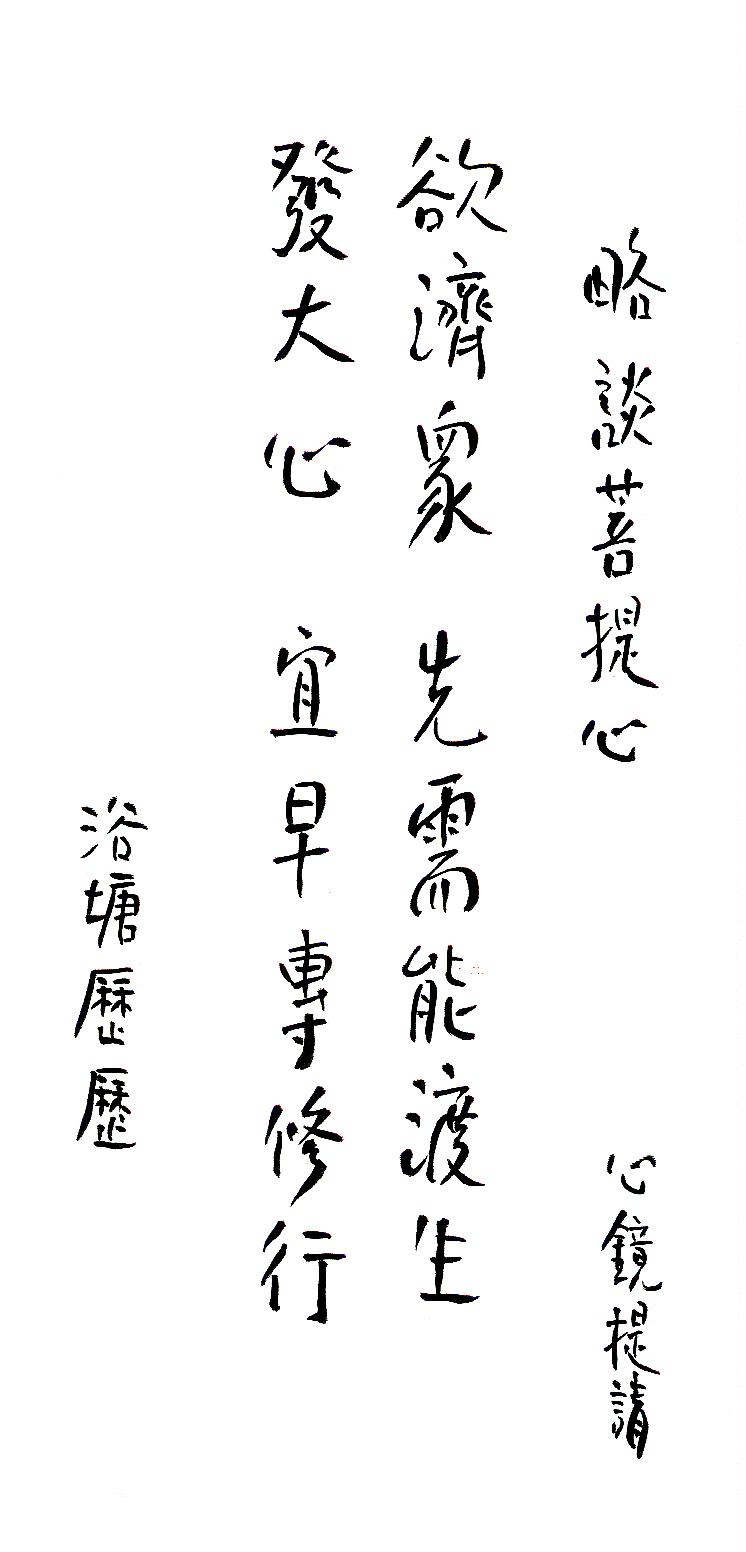 略談菩提心
心鏡提請
欲濟眾 先需能渡生
發大心 宜早專修行
浴塘歷歷